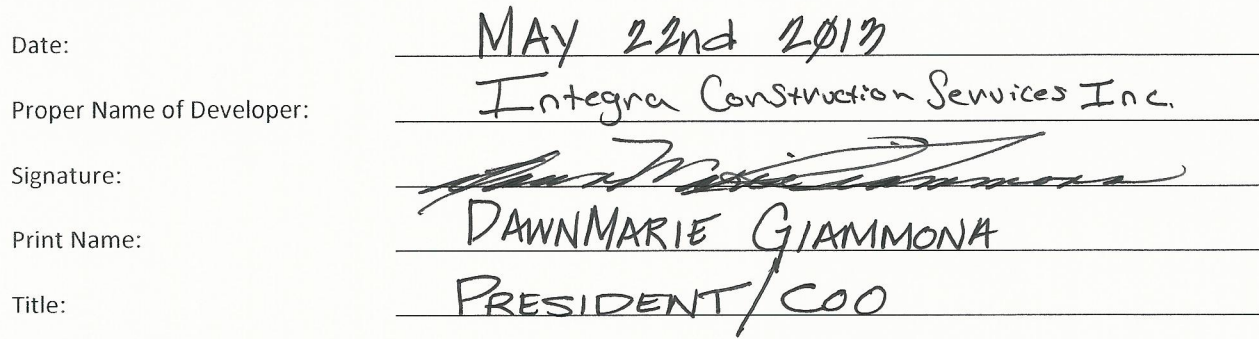 Date: MAY 22nd 2013
Proper Name of Developer: Integra Construction Services Inc.
Signature: DawnMarie Giammona
Print Name: DAWNMARIE GIAMMONA
Title: PRESIDENT/COO